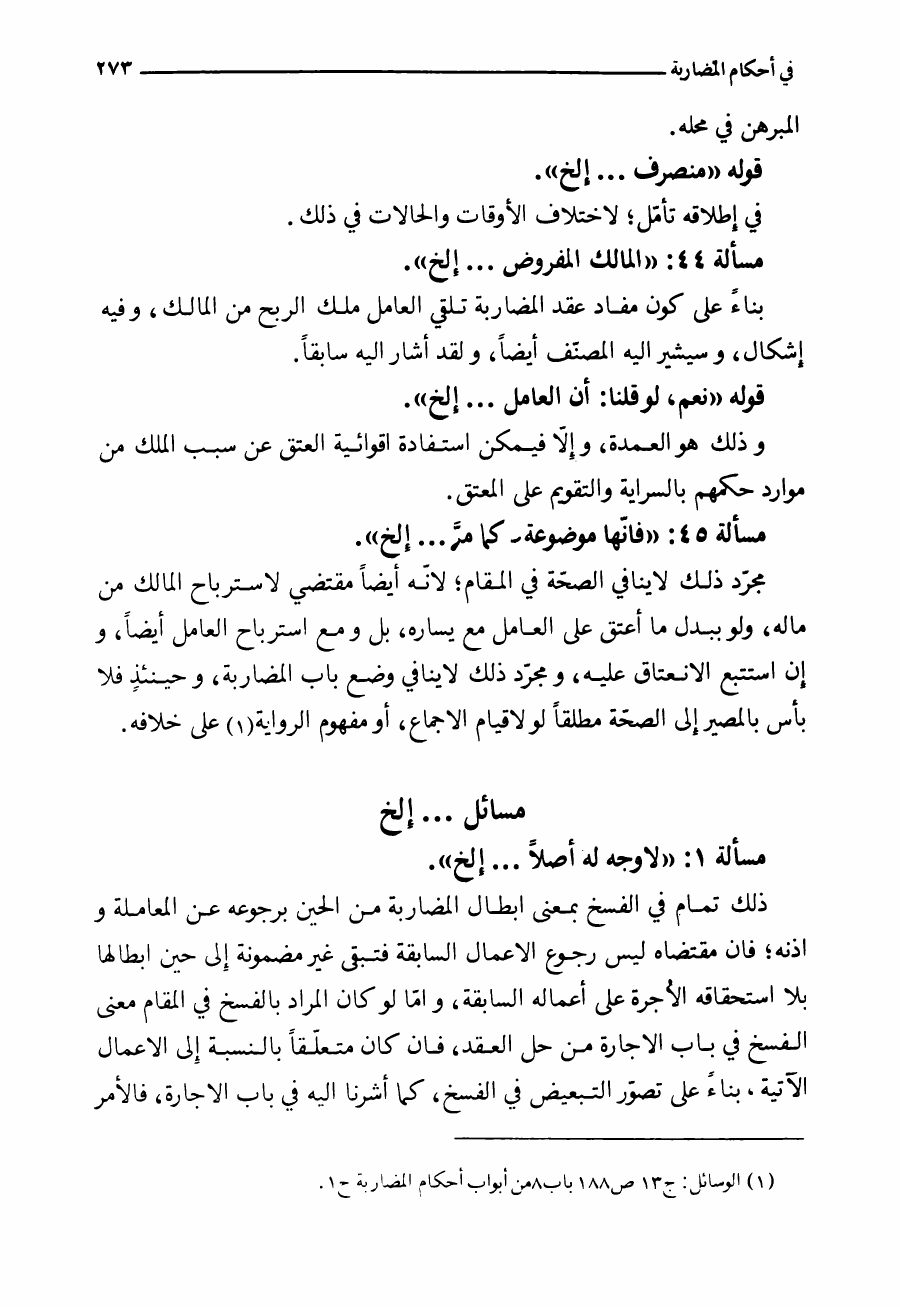 في أحكام المضاربة ٢٧٣
المبرهن في محله.
قوله «منصرف ... إلخ».
في إطلاقه تأمّل؛ لاختلاف الأوقات والحالات في ذلك.
مسألة ٤٤: «المالك المفروض ... إلخ».
بناءً على كون مفاد عقد المضاربة تلقي العامل ملك الربح من المالك، و فيه
إشكال، و سيشير اليه المصنّف أيضاً، و لقد أشار اليه سابقاً.
قوله «نعم، لو قلنا: أن العامل ... إلخ».
و ذلك هو العمدة، و إلّا فيمكن استفادة اقوائية العتق عن سبب الملك من
موارد حكمهم بالسراية والتقويم على المعتق.
مسألة ٤٥: «فانّها موضوعة ـ كما مرَّ ... إلخ».
مجرّد ذلك لاينافي الصحّة في المقام؛ لانّه أيضاً مقتضي لاسترباح المالك من
ماله، ولو ببدل ما أعتق على العامل مع يساره، بل و مع استرباح العامل أيضاً، و
إن استتبع الانعتاق عليه، و مجرّد ذلك لاينافي وضع باب المضاربة، و حينئذٍ فلا
بأس بالمصير إلى الصحّة مطلقاً لو لاقيام الاجماع، أو مفهوم الرواية(١) على خلافه.
مسائل ... إلخ
مسألة ١: «لاوجه له أصلاً ... إلخ».
ذلك تمام في الفسخ بمعنى ابطال المضاربة من الحين برجوعه عن المعاملة و
اذنه؛ فان مقتضاه ليس رجوع الاعمال السابقة فتبقى غير مضمونة إلى حين ابطالها
بلا استحقاقه الأجرة على أعماله السابقة، و امّا لو كان المراد بالفسخ في المقام معنى
الفسخ في باب الاجارة من حل العقد، فان كان متعلّقاً بالنسبة إلى الاعمال
الآتية. بناءً على تصوّر التبعيض في الفسخ، كما أشرنا اليه في باب الاجارة، فالأمر
(١) الوسائل: ج١٣ ص١٨٨ باب٨من أبواب أحكام المضاربة ح١.